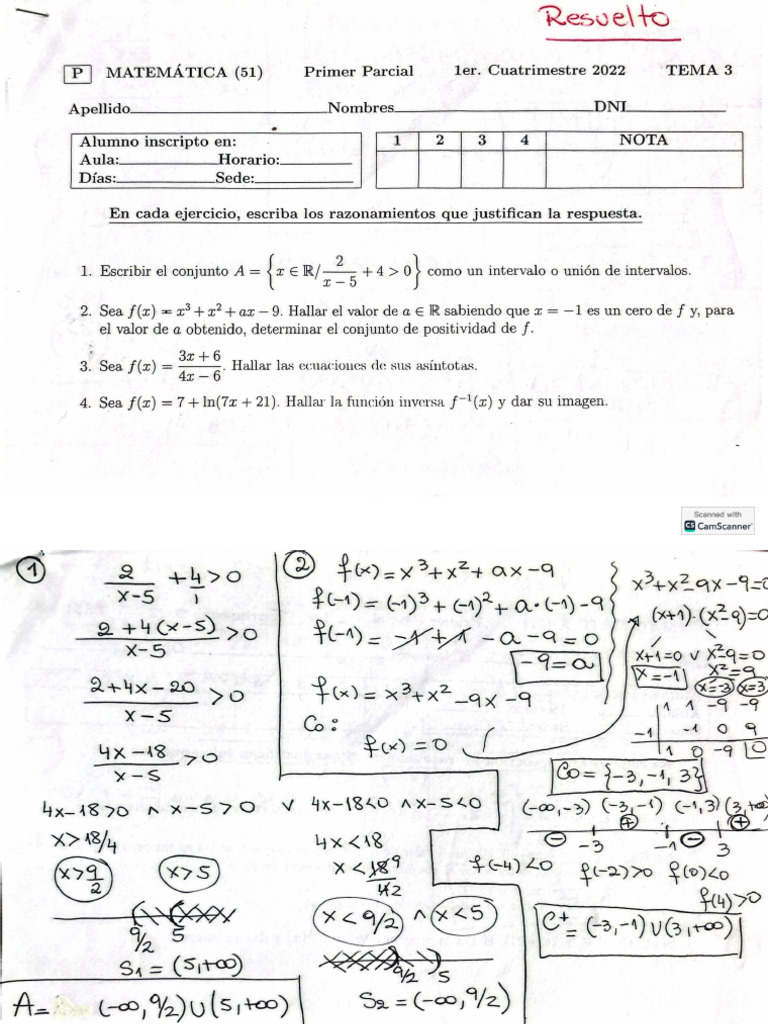 Resuelto
P MATEMÁTICA (51) Primer Parcial 1er. Cuatrimestre 2022 TEMA 3
Apellido Nombres DNI
Alumno inscripto en:
Aula: Horario:
Días: Sede:
1 2 3 4 NOTA
En cada ejercicio, escriba los razonamientos que justifican la respuesta.
1. Escribir el conjunto A = {x ∈ ℝ/ 2/(x − 5) + 4 > 0} como un intervalo o unión de intervalos.
2. Sea f(x) = x³ + x² + ax − 9. Hallar el valor de a ∈ ℝ sabiendo que x = −1 es un cero de f y, para
el valor de a obtenido, determinar el conjunto de positividad de f.
3. Sea f(x) = (3x + 6)/(4x − 6). Hallar las ecuaciones de sus asíntotas.
4. Sea f(x) = 7 + ln(7x + 21). Hallar la función inversa f⁻¹(x) y dar su imagen.
Scanned with
CS CamScanner
1
2/(x-5) + 4/1 > 0
(2+4(x-5))/(x-5) > 0
(2+4x-20)/(x-5) > 0
(4x-18)/(x-5) > 0
4x-18>0 ∧ x-5>0 ∨ 4x-18<0 ∧ x-5<0
x>18/4 4x<18
x>9/2 x>5 x<18/4 9 2
9/2 5 x<9/2 ∧ x<5
S1 = (5,+∞) 9/2 5
S2 = (-∞, 9/2)
A = (-∞, 9/2) ∪ (5,+∞)
2 f(x) = x³+x²+ax-9
f(-1) = (-1)³+(-1)²+a·(-1)-9
f(-1) = -1+1-a-9=0
-9=a
f(x) = x³+x²-9x-9
Co:
f(x)=0
x³+x²-9x-9=0
(x+1)·(x²-9)=0
x+1=0 ∨ x²-9=0
x=-1 x²=9
x=-3 x=3
1 1 -9 -9
-1 -1 0 9
1 0 -9 0
Co = {-3,-1,3}
(-∞,-3) (-3,-1) (-1,3) (3,+∞)
− + − +
-3 -1 3
f(-4)<0 f(-2)>0 f(0)<0
f(4)>0
C⁺ = (-3,-1) ∪ (3,+∞)